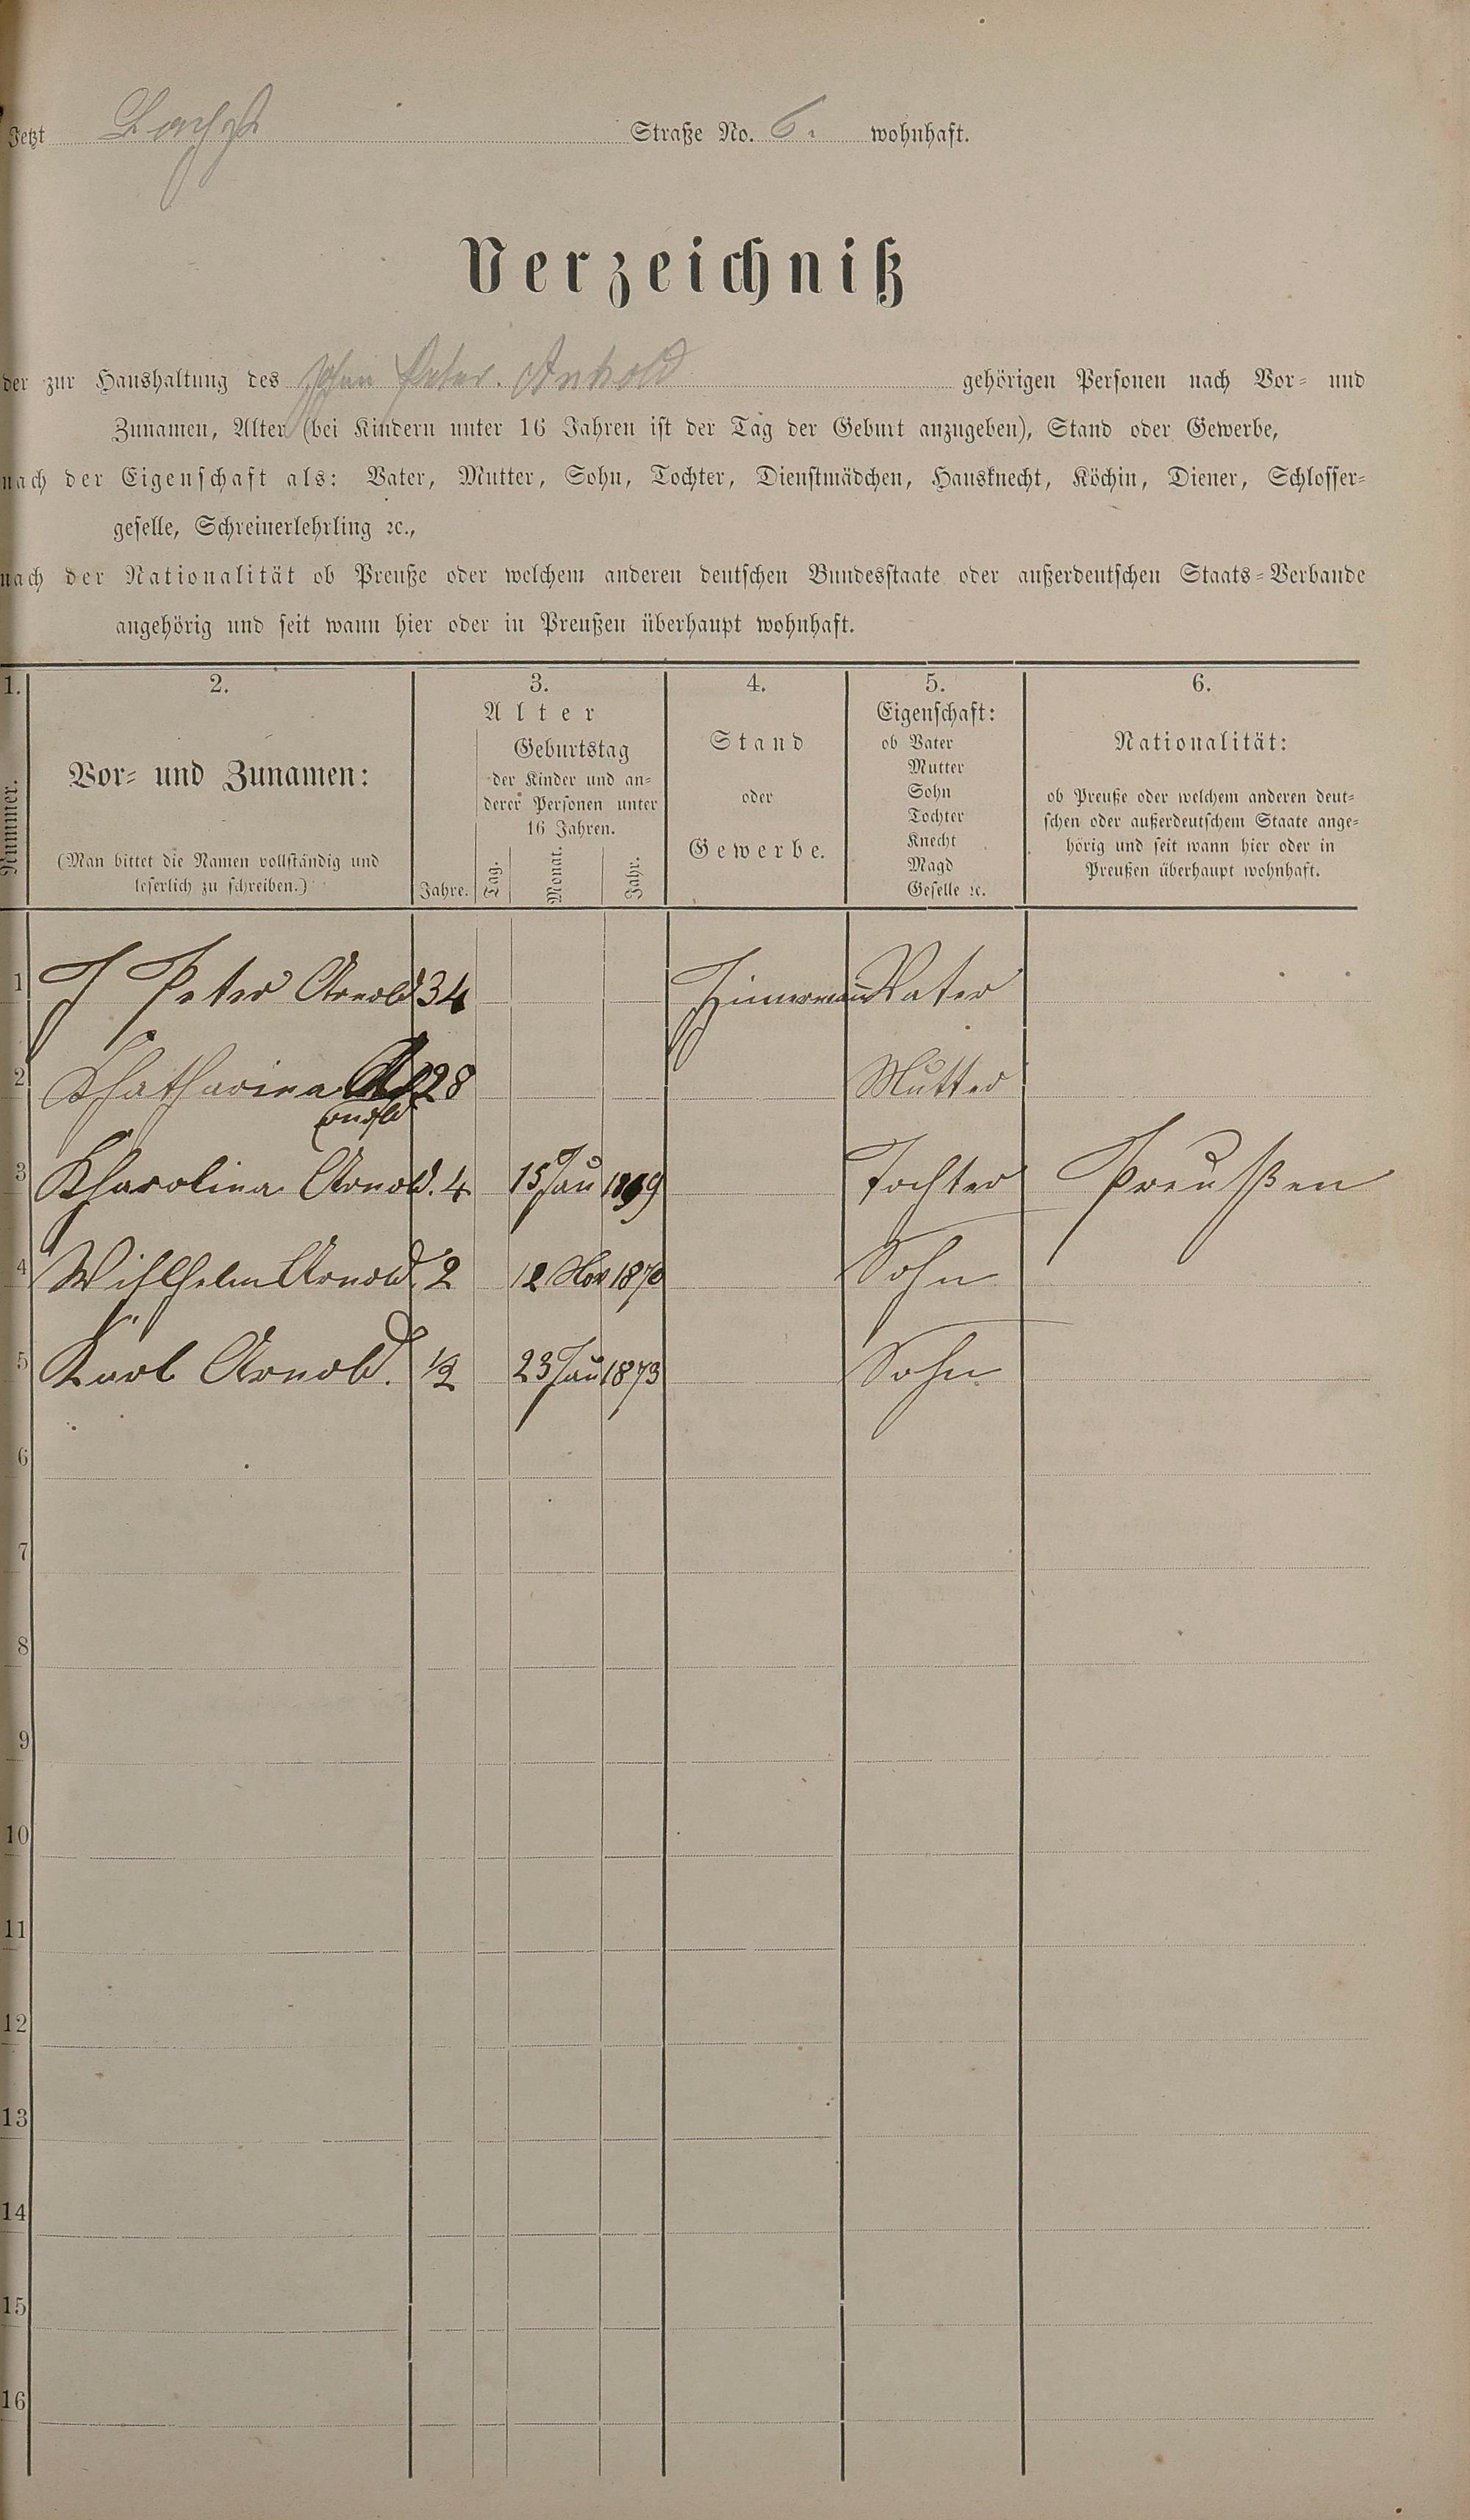 Jetzt Straße No. 6. wohnhaft.
Verzeichniß
der zur Haushaltung des Johann Peter Arnold gehörigen Personen nach Vor- und
Zunamen, Alter (bei Kindern unter 16 Jahren ist der Tag der Geburt anzugeben), Stand oder Gewerbe,
nach der Eigenschaft als: Vater, Mutter, Sohn, Tochter, Dienstmädchen, Hausknecht, Köchin, Diener, Schlosser-
geselle, Schreinerlehrling ꝛc.,
nach der Nationalität ob Preuße oder welchem anderen deutschen Bundesstaate oder außerdeutschen Staats-Verbande
angehörig und seit wann hier oder in Preußen überhaupt wohnhaft.
1.
Nummer.
2.
Vor- und Zunamen:
(Man bittet die Namen vollständig und
leserlich zu schreiben.)
3.
Alter
Geburtstag
der Kinder und an-
derer Personen unter
16 Jahren.
Jahre. Tag. Monat. Jahr.
4.
Stand
oder
Gewerbe.
5.
Eigenschaft:
ob Vater
Mutter
Sohn
Tochter
Knecht
Magd
Geselle ꝛc.
6.
Nationalität:
ob Preuße oder welchem anderen deut-
schen oder außerdeutschem Staate ange-
hörig und seit wann hier oder in
Preußen überhaupt wohnhaft.
1 J Peter Arnold 34 Zimermann Vater
2 Khatharina Arnold 28 Mutter
3 Kharolina Arnold. 4 15 Jau 1869 Tochter Preußen
4 Wihlhelm Arnold. 2 12 Nov 1870 Sohn
5 Karl Arnold. 1/2 23 Jau 1873 Sohn
6
7
8
9
10
11
12
13
14
15
16